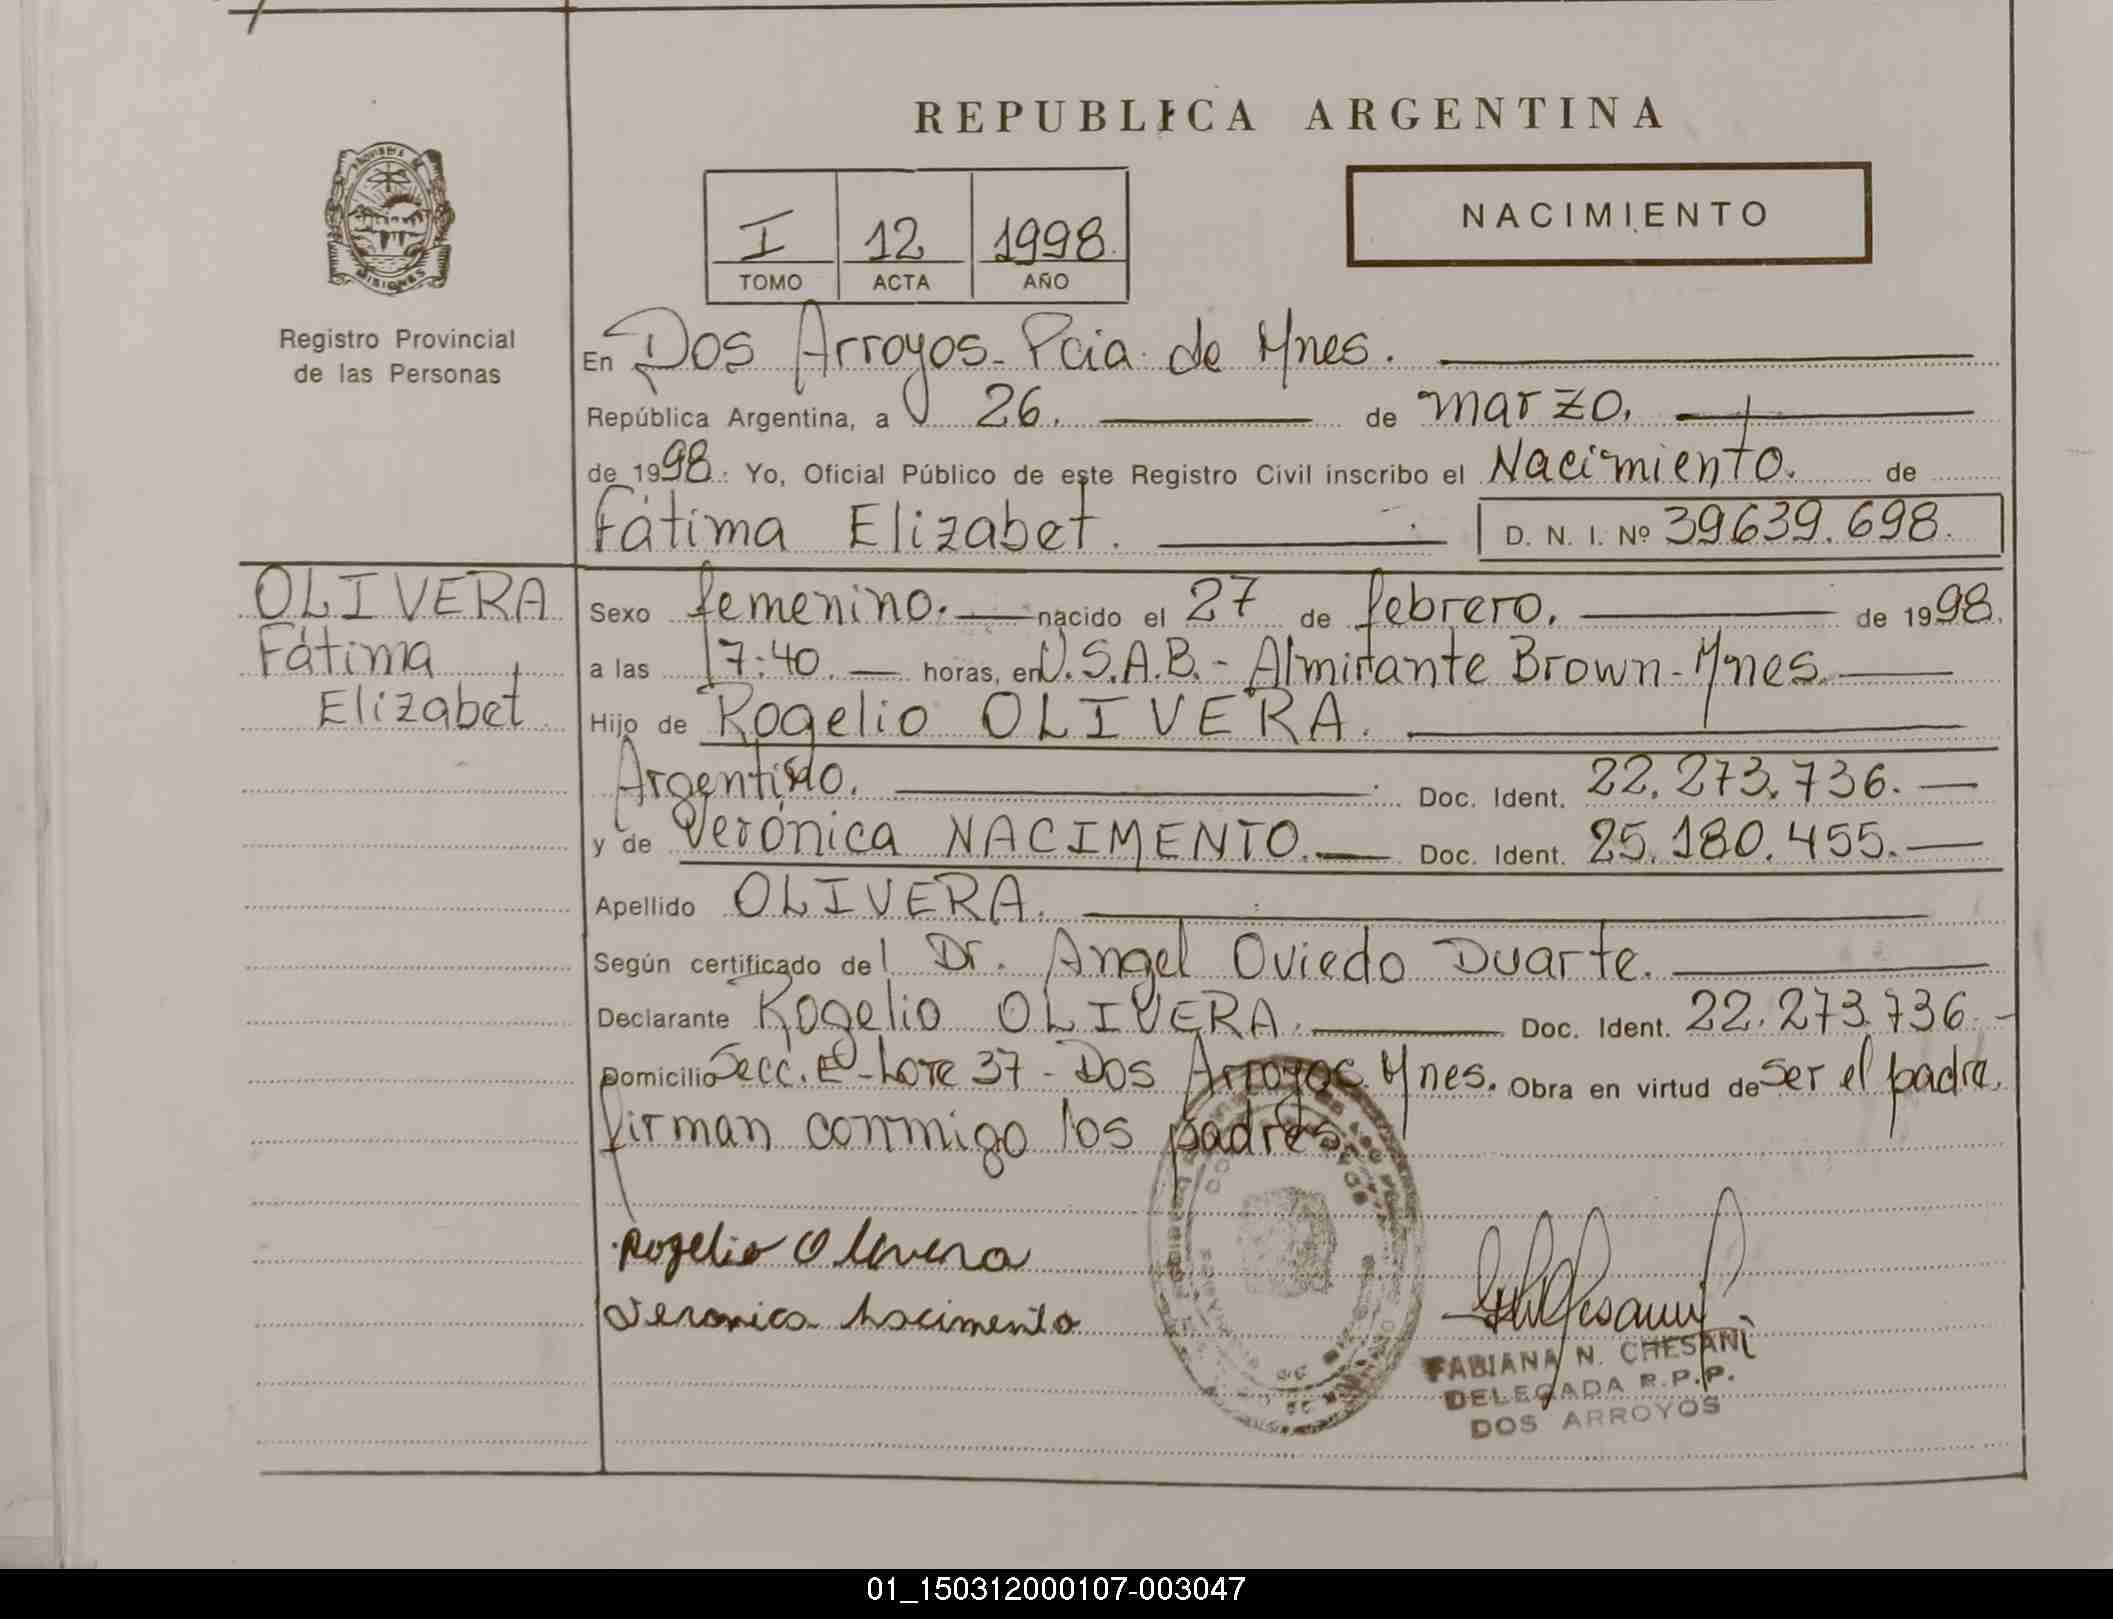 REPUBLICA ARGENTINA
NACIMIENTO
I 12 1998.
TOMO ACTA AÑO
Registro Provincial
de las Personas
En Dos Arroyos - Pcia. de Mnes.
República Argentina, a 26. de marzo.
de 1998. Yo, Oficial Público de este Registro Civil inscribo el Nacimiento. de
Fátima Elizabet. D. N. I. Nº 39639.698.
OLIVERA
Fátima
Elizabet
Sexo femenino. nacido el 27 de febrero. de 1998.
a las 17:40. horas, en U.S.A.B. - Almirante Brown - Mnes.
Hijo de Rogelio OLIVERA.
Argentino. Doc. Ident. 22.273.736.
y de Verónica NACIMENTO. Doc. Ident. 25.180.455.
Apellido OLIVERA.
Según certificado del Dr. Angel Oviedo Duarte.
Declarante Rogelio OLIVERA. Doc. Ident. 22.273.736.
Domicilio Secc. Lote 37 - Dos Arroyos Mnes. Obra en virtud de ser el padre.
firman conmigo los padres.
Rogelio Olivera
Veronica Nacimento
FABIANA N. CHESANI
DELEGADA R.P.P.
DOS ARROYOS
01_150312000107-003047